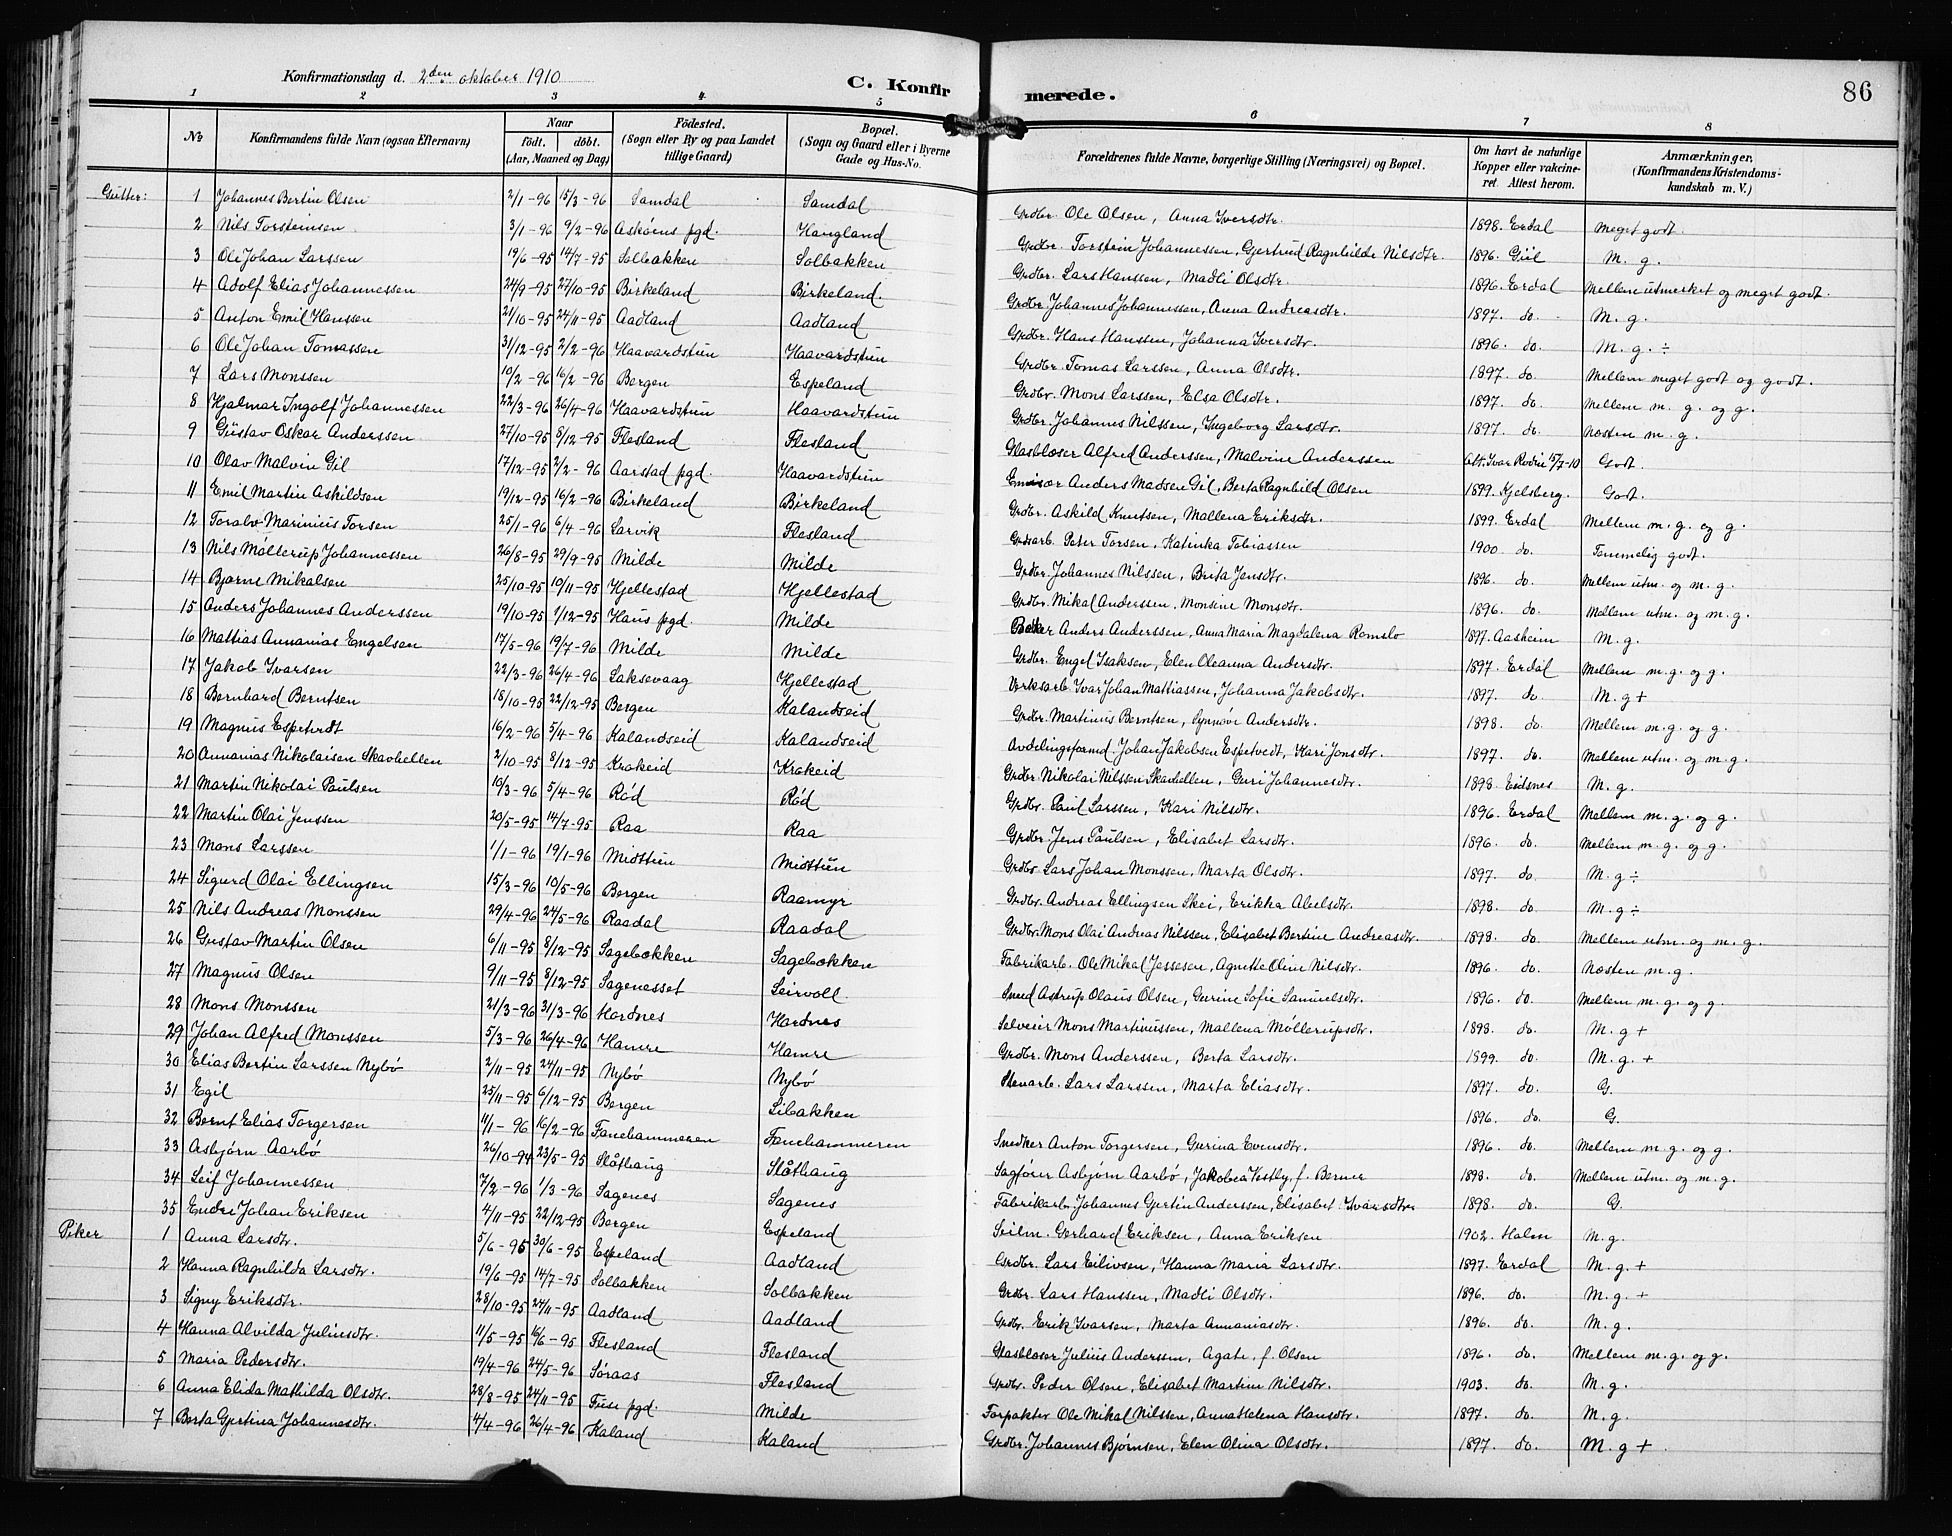 Konfirmationsdag d. 2den oktober 1910
C. Konfirmerede.
86
1 2 3 4 5 6 7 8
No
Konfirmandens fulde Navn (ogsaa Efternavn)
Naar født. døbt. (Aar, Maaned og Dag)
Fødested. (Sogn eller By og paa Landet tillige Gaard)
Bopæl. (Sogn og Gaard eller i Byerne Gade og Hus-No.
Forældrenes fulde Navne, borgerlige Stilling (Næringsvei) og Bopæl.
Om havt de naturlige Kopper eller vakcineret. Attest herom.
Anmærkninger. (Konfirmandens Kristendomskundskab m. V.)
Gutter: 1 Johannes Bertin Olsen 2/1-96 15/3-96 Samdal Samdal Grdbr. Ole Olsen, Anna Iversdtr. 1898. Erdal Meget godt.
2 Nils Torsteinsen 3/1-96 9/2-96 Askøens pgd. Haugland Grdbr. Torstein Johannessen, Gjertrud Ragnhilde Nilsdtr. 1896. Giil M. g.
3 Ole Johan Larssen 19/6-95 14/7-95 Solbakken Solbakken Grdbr. Lars Hanssen, Madli Olsdtr. 1896. Erdal Mellem utmerket og meget godt.
4 Adolf Elias Johannessen 24/9-95 27/10-95 Birkeland Birkeland. Grdbr. Johannes Johannessen, Anna Andreasdtr. 1897. do. M. g.
5 Anton Emil Hanssen 21/10-95 24/11-95 Aadland Aadland Grdbr. Hans Hanssen, Johanna Iversdtr. 1896. do. M. g. ÷
6 Ole Johan Tomassen 31/12-95 2/2-96 Haavardstun Haavardstun Grdbr. Tomas Larssen, Anna Olsdtr. 1897. do. Mellem meget godt og godt.
7 Lars Monssen 10/2-96 16/2-96 Bergen Espeland Grdbr. Mons Larssen, Elsa Olsdtr. 1897. do. Mellem m. g. og g.
8 Hjalmar Ingolf Johannessen 22/3-96 26/4-96 Haavardstun Haavardstun Grdbr. Johannes Nilssen, Ingeborg Larsdtr. 1897. do. Næsten m. g.
9 Gustav Oskar Anderssen 27/10-95 8/12-95 Flesland Flesland Glasblæser Alfred Anderssen, Malvine Anderssen Att. Ivar Rodin 15/7-10 Godt.
10 Olav Malvin Gil 17/12-95 2/2-96 Aarstad pgd. Haavardstun Emisær Anders Madsen Gil, Berta Ragnhild Olsen 1899. Kjelsberg. Godt.
11 Emil Martin Askildsen 19/12-95 16/2-96 Birkeland Birkeland Grdbr. Askild Knutsen, Mallena Eriksdtr. 1899. Erdal Mellem m. g. og g.
12 Toralv Marinius Torsen 25/1-96 6/4-96 Larvik Flesland Peter Torsen, Katinka Tobiassen 1900 do. Temmelig godt.
13 Nils Møllerup Johannessen 26/8-95 29/9-95 Milde Milde Grdbr. Johannes Nilssen, Brita Jensdtr. 1896. do. Mellem utm. og m. g.
14 Bjarne Mikalsen 25/10-95 10/11-95 Hjellestad Hjellestad Grdbr. Mikal Anderssen, Monsine Monsdtr. 1896. do. Mellem utm. og m. g.
15 Anders Johannes Anderssen 19/10-95 1/12-95 Haus pgd. Milde Anders Anderssen, Anna Maria Magdalena Romslo 1897. Aasheim M. g.
16 Mattias Annanias Engelsen 17/5-96 19/7-96 Milde Milde Grdbr. Engel Isaksen, Elen Oleanna Andersdtr. 1897. Erdal Mellem m. g. og g.
17 Jakob Ivarsen 22/3-96 26/4-96 Laksevaag Hjellestad Verksarb. Ivar Johan Mattiassen, Johanna Jakobsdtr. 1897. do. M. g +
18 Bernhard Berntsen 18/10-95 22/12-95 Bergen Kalandseid Grdbr. Martinus Berntsen, Synnøve Andersdtr. 1898. do. Mellem m. g. og g.
19 Magnus Espetvedt 16/2-96 5/4-96 Kalandseid Kalandseid Avdelingsformd. Johan Jakobsen Espetvedt, Kari Jonsdtr. 1897. do. Mellem utm. og m. g.
20 Annanias Nikolaisen Skavhellen 2/10-95 8/12-95 Krokeid Krokeid Grdbr. Nikolai Nilssen Skavhellen, Guri Johannesdtr. 1898 Eidsnes M. g.
21 Martin Nikolai Paulsen 10/3-96 5/4-96 Rød Rød Grdbr. Paul Larssen, Kari Nilsdtr. 1896. Erdal Mellem m. g. og g.
22 Martin Olai Jenssen 20/5-95 14/7-95 Raa Raa Grdbr. Jens Paulsen, Elisabet Larsdtr. 1896. do. Mellem m. g. og g.
23 Mons Larssen 1/1-96 19/1-96 Midttun Midttun Grdbr. Lars Johan Monssen, Marta Olsdtr. 1897. do. M. g ÷
24 Sigurd Olai Ellingsen 15/3-96 10/5-96 Bergen Raamyr Grdbr. Andreas Ellingsen Skei, Erikka Abelsdtr. 1898. do. M. g ÷
25 Nils Andreas Monssen 29/4-96 24/5-96 Raadal Raadal Grdbr. Mons Olai Andreas Nilssen, Elisabet Bertine Andreasdtr. 1898. do. Mellem utm. og m. g.
26 Gustav Martin Olsen 6/11-95 8/12-95 Sagebækken Sagebækken Fabrikarb. Ole Mikal Jessesen, Agnette Oline Nilsdtr. 1896. do. Næsten m. g.
27 Magnus Olsen 9/11-95 8/12-95 Sagenesset Leirvoll. Smed Astrup Olaus Olsen, Gurine Sofie Samuelsdtr. 1896. do. Mellem m. g. og g.
28 Mons Monssen 21/3-96 31/3-96 Hordnes Hordnes Selveier Mons Martinussen, Mallena Møllerupsdtr. 1898. do. M. g +
29 Johan Alfred Monssen 5/3-96 26/4-96 Hamre Hamre Grdbr. Mons Anderssen, Berta Larsdtr. 1899. do. M. g. +
30 Elias Bertin Larssen Nybø 2/11-95 24/11-95 Nybø Nybø Stenarb. Lars Larssen, Marta Eliasdtr. 1897. do. G.
31 Egil 25/11-95 6/12-95 Bergen Libakken 1896. do. G.
32 Bernt Elias Torgersen 11/1-96 16/2-96 Fanehammeren Fanehammeren Snedker Anton Torgersen, Gurina Evensdtr. 1896. do. Mellem m. g. og g.
33 Asbjørn Aarbø 26/10-94 23/5-95 Slåthaug Slåthaug Sagfører Asbjørn Aarbø, Jakobea Vestly, f. Berner 1898. do. Mellem utm. og m. g.
34 Leif Johannessen 7/2-96 1/3-96 Sagenes Sagenes Fabrikarb. Johannes Gjertin Anderssen, Elisabet Ivarsdtr 1898. do. G.
35 Endre Johan Eriksen 4/11-95 22/12-95 Bergen Espeland Seilm. Gerhard Eriksen, Anna Eriksen 1902. Holm M. g.
Piker 1 Anna Larsdtr. 5/6-95 30/6-95 Espeland Aadland Grdbr. Lars Eilivsen, Hanna Maria Larsdtr. 1897. Erdal M. g. +
2 Hanna Ragnhilda Larsdtr. 19/6-95 14/7-95 Solbakken Solbakken Grdbr. Lars Hanssen, Madli Olsdtr. 1896. do. M. g. +
3 Signy Eriksdtr. 28/10-95 24/11-95 Aadland Aadland Grdbr. Erik Ivarsen, Marta Annaniasdtr. 1896. do. M. g.
4 Hanna Alvilda Juliusdtr. 11/5-95 16/6-95 Flesland Flesland Glasblæser Julius Anderssen, Agate, f. Olsen 1896. do. Mellem m. g. og g.
5 Maria Pedersdtr. 19/4-96 24/5-96 Søraas Flesland Grdbr. Peder Olsen, Elisabet Martine Nilsdtr. 1903. do. M. g.
6 Anna Elida Mathilda Olsdtr. 28/8-95 24/11-95 Fuse pgd. Milde Forpakter Ole Mikal Nilssen, Anna Helena Hansdtr. 1897. do. M. g.
7 Berta Gjertina Johannesdtr. 4/4-96 26/4-96 Kaland Kaland Grdbr. Johannes Bjørnsen, Elen Olina Olsdtr. 1897. do. M. g +